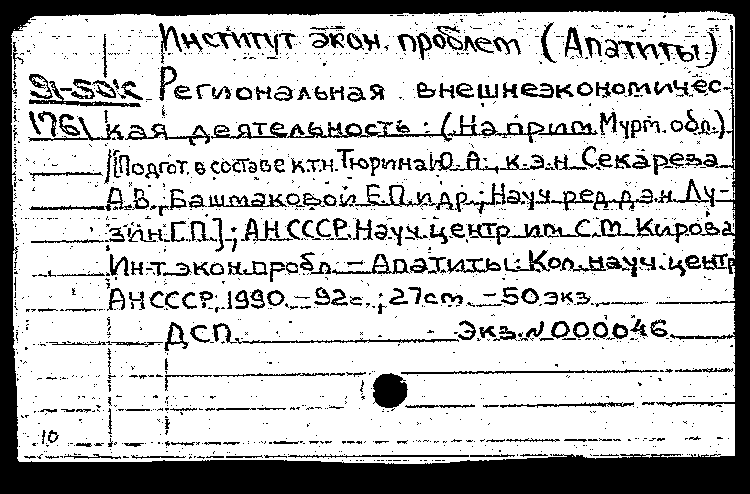 Институт экон. проблем (Апатиты)
Региональная внешнеэкономичес-
1761 кая деятельность: (На прим. Мурм. обл.)
/[Подгот. в составе к.т.н. Тюрина Ю.А., к.э.н Секарева
А.В., Башмаковой Е.П. и др.; Науч. ред. д.э.н. Лу-
зин Г.П.]; АН СССР. Науч. центр им С.М. Кирова
Ин-т экон. пробл. – Апатиты: Кол. науч. центр
АН СССР, 1990. – 92с.; 27см. – 50 экз.
ДСП. Экз. N 000046.
10